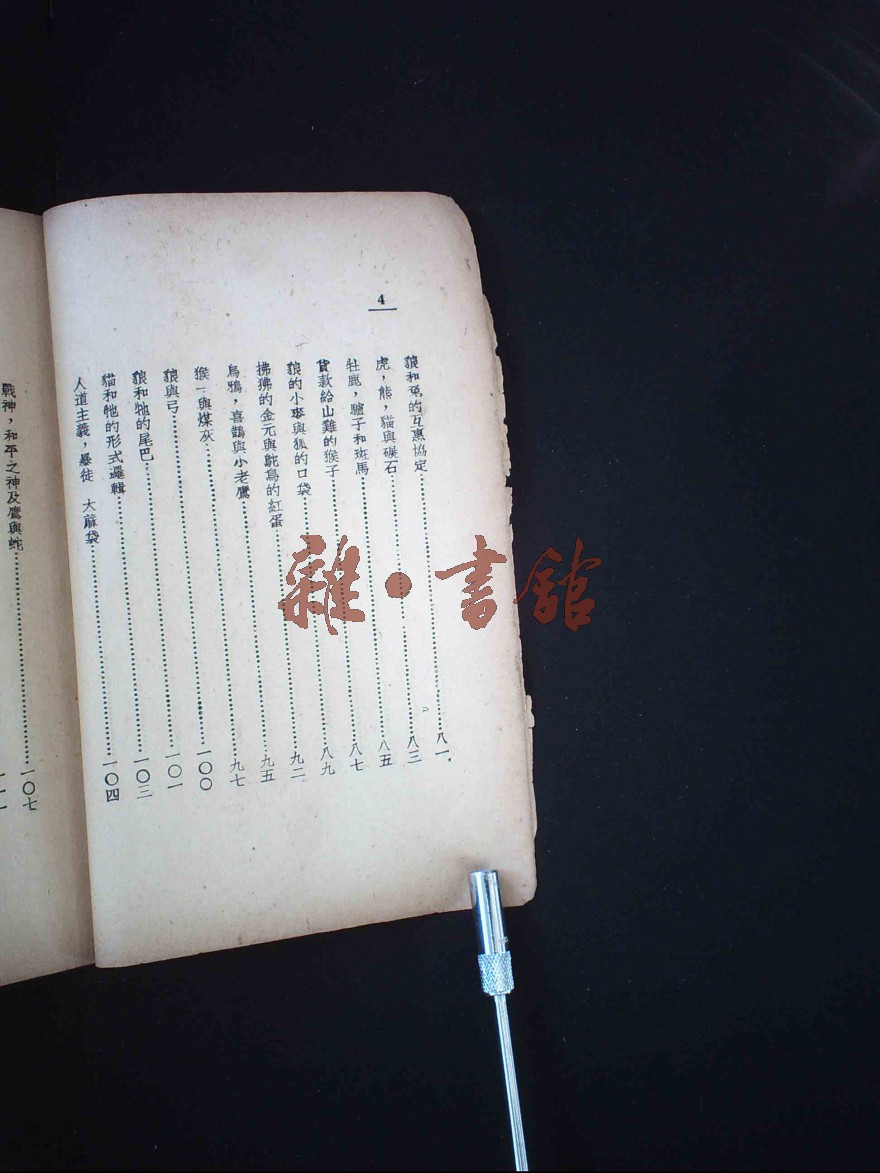 4
狼和兎的互惠協定……八一
虎，熊，貓與礙石……八三
牡鹿，驢子和斑馬……八五
貨款給山雞的猴子……八七
狼的小麥與狐的口袋……八九
拂狒的金元與鴕鳥的紅蛋……九二
烏鴉，喜鵲與小老鷹……九五
猴一與煤灰……九七
狼與弓……一〇〇
狼和牠的尾巴……一〇一
貓和牠的形式邏輯……一〇三
人道主義，暴徒 大蔴袋……一〇四
戰神，和平之神及鷹與蛇……一〇七
雜·書館